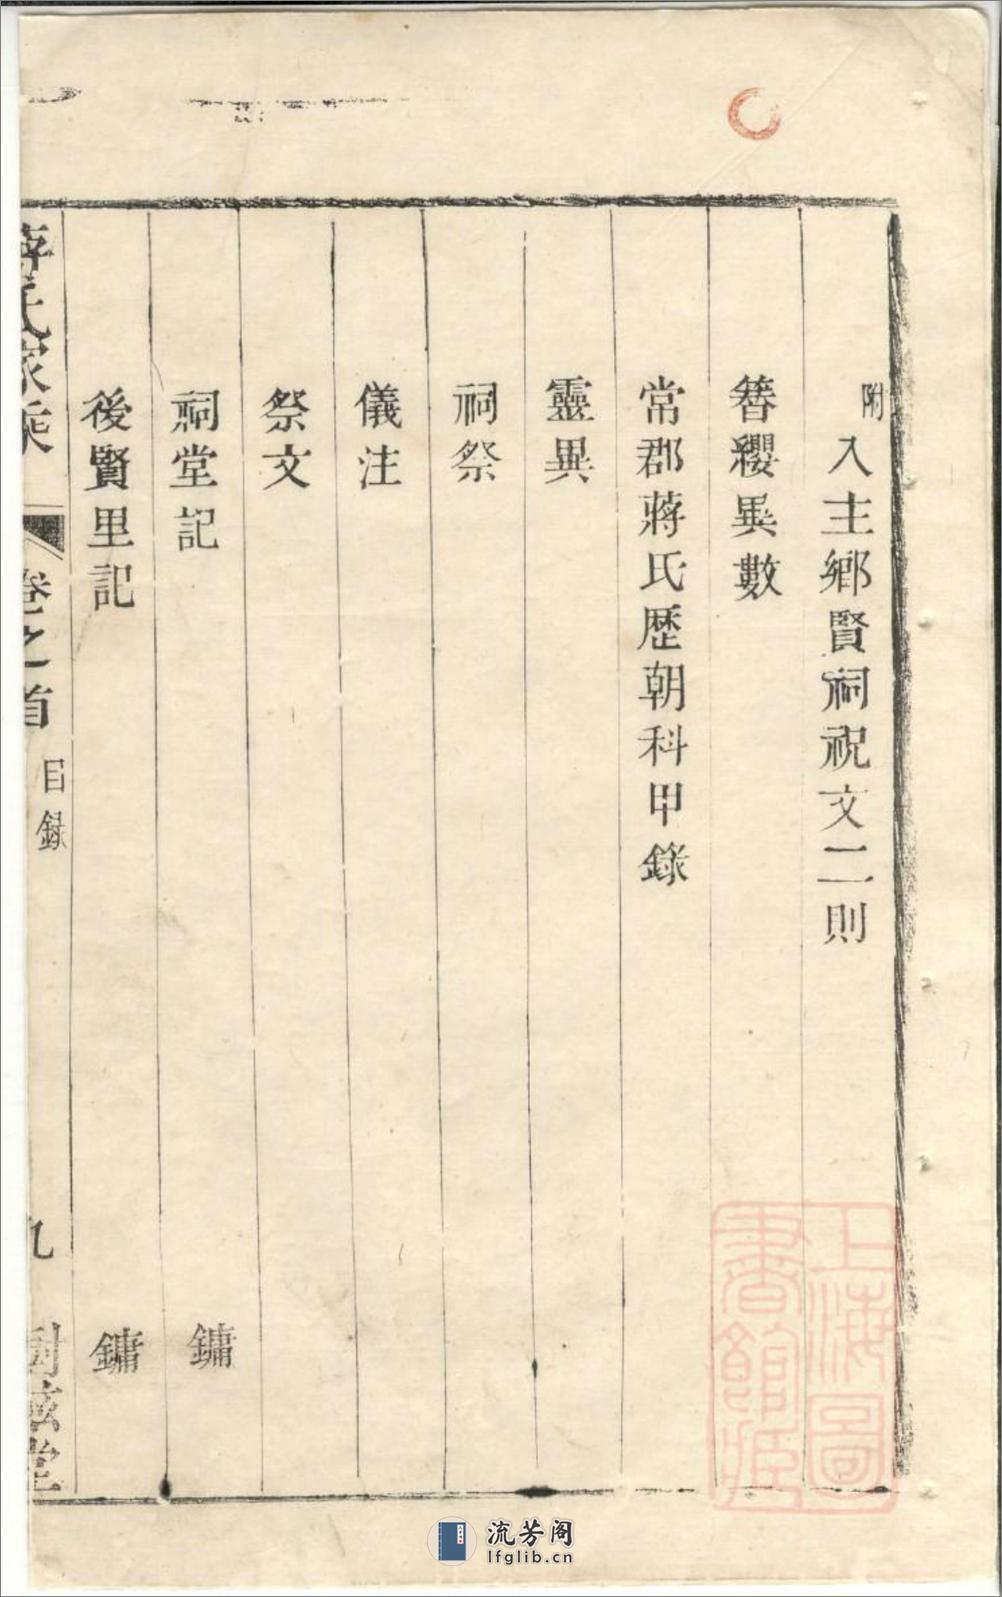 附入主鄉賢祠祝文二則
簪纓異數
常郡蔣氏歷朝科甲錄
靈異
祠祭
儀注
祭文
祠堂記 鏞
後賢里記 鏞
蔣氏家乘 卷之首 目録 九
上海圖書館藏
流芳阁
lfglib.cn